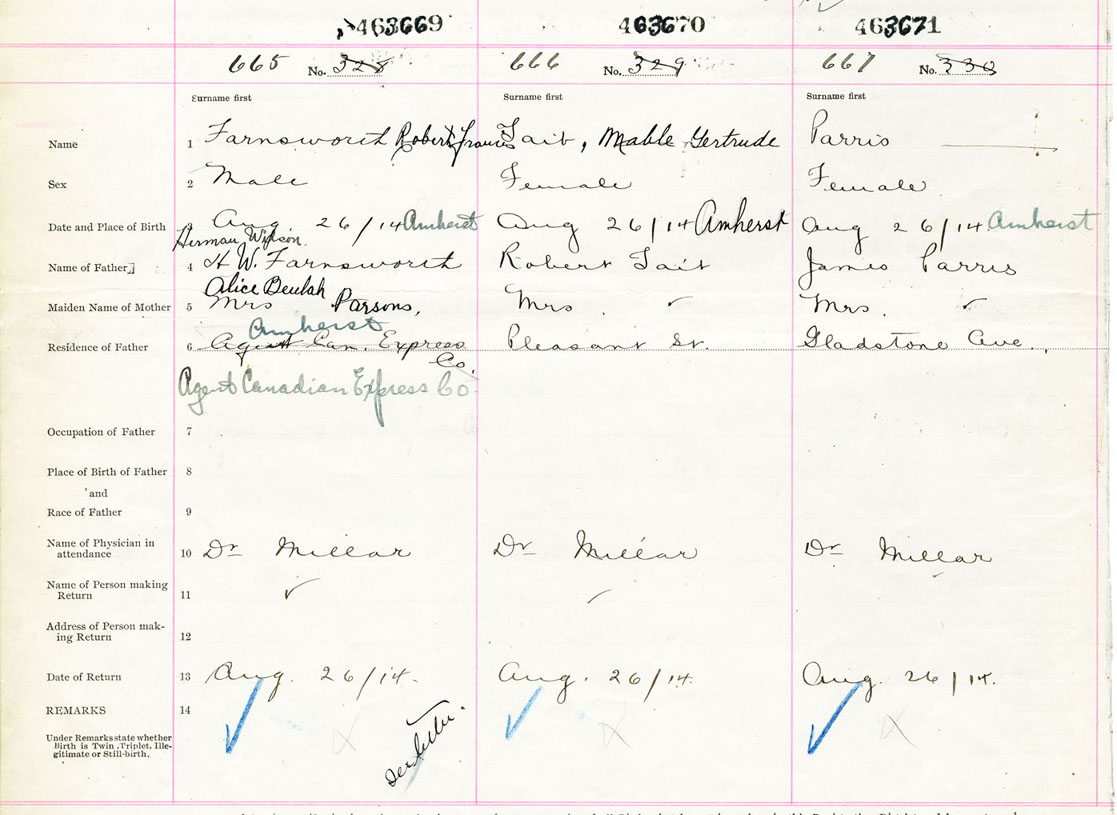 463669 463670 463671
665 No. 328 666 No. 329 667 No. 330
Surname first Surname first Surname first
Name 1 Farnsworth Robert Francis Tait, Mable Gertrude Parris
Sex 2 Male Female Female
Date and Place of Birth 3 Aug 26/14 Amherst Aug 26/14 Amherst Aug 26/14 Amherst
Herman Wilson
Name of Father 4 H. W. Farnsworth Robert Tait James Parris
Alice Beulah
Maiden Name of Mother 5 Mrs Parsons, Mrs. Mrs.
Amherst
Residence of Father 6 Agent Can. Express Pleasant St. Gladstone Ave.,
Co.
Agent Canadian Express Co
Occupation of Father 7
Place of Birth of Father 8
and
Race of Father 9
Name of Physician in
attendance 10 Dr Millar Dr Millar Dr Millar
Name of Person making
Return 11
Address of Person mak-
ing Return 12
Date of Return 13 Aug. 26/14. Aug. 26/14. Aug. 26/14.
REMARKS 14
See letter.
Under Remarks state whether
Birth is Twin, Triplet, Ille-
gitimate or Still-birth.